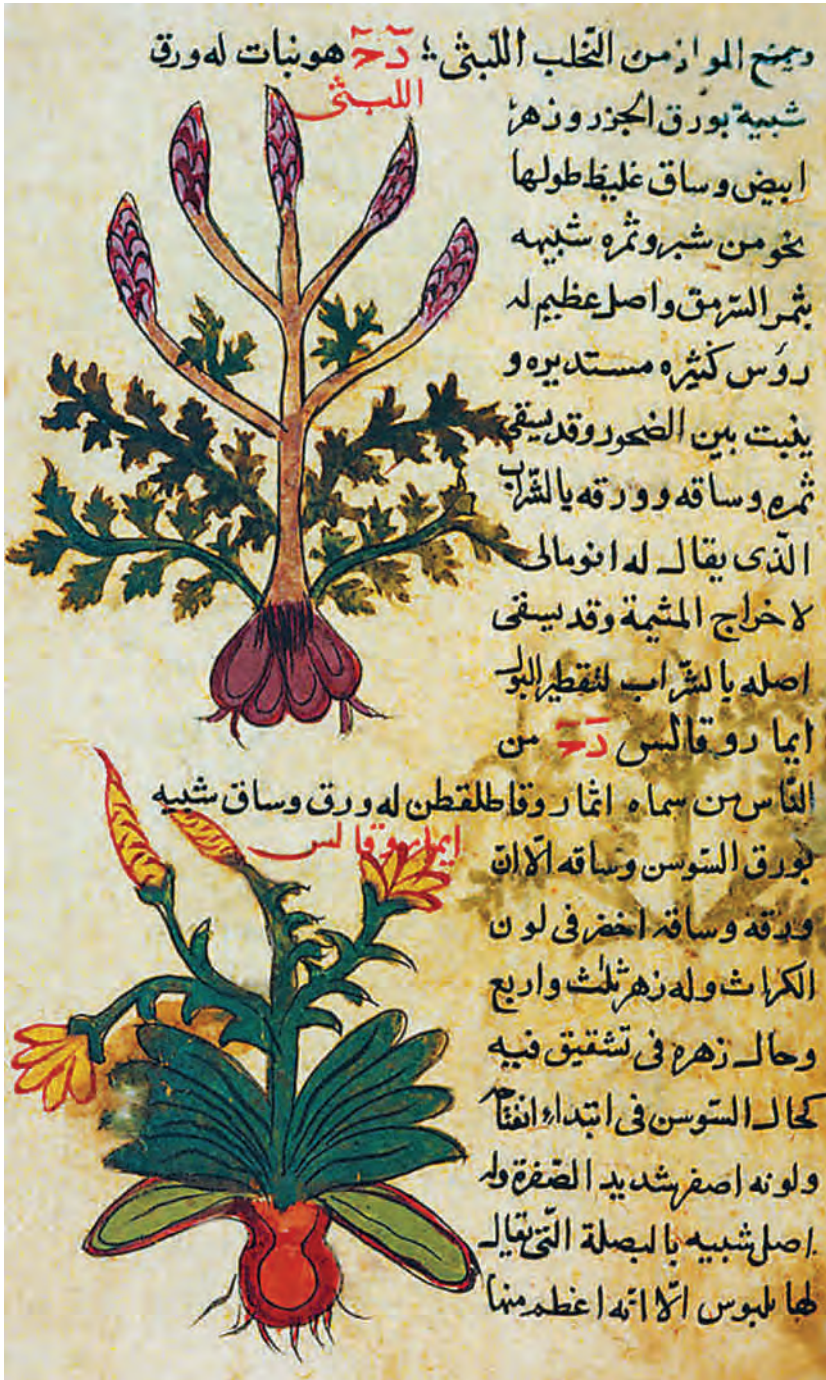 ويمنع المواد من التحلب اللبثى؛ دَحَ هو نبات له ورق
اللبثى
شبيه بورق الجزر وزهر
ابيض وساق غليظ طولها
نحو من شبر وثمره شبيهه
بثمر السّرمق واصل عظيم له
رؤس كثيره مستديره و
ينبت بين الصخور وقد يسقى
ثمره وساقه وورقه بالشّراب
الّذى يقال له انومالى
لاخراج المشيمة وقد يسقى
اصله بالشّراب لتقطير البول
ايما روقالس دَحَ من
النّاس من سماه ائمار وقاطلقطن له ورق وساق شبيه
ايمار وقالس
بورق السّوسن وساقه الّا انّ
ورقه وساقه اخضر فى لون
الكراث وله زهر ثلث واربع
وحال زهره فى تشقيق فيه
كحال السّوسن فى ابتداء انفتاح
ولونه اصفر شديد الصّفرة وله
اصل شبيه بالبصلة الّتى يقال
لها بلبوس الّا انّه اعظم منها